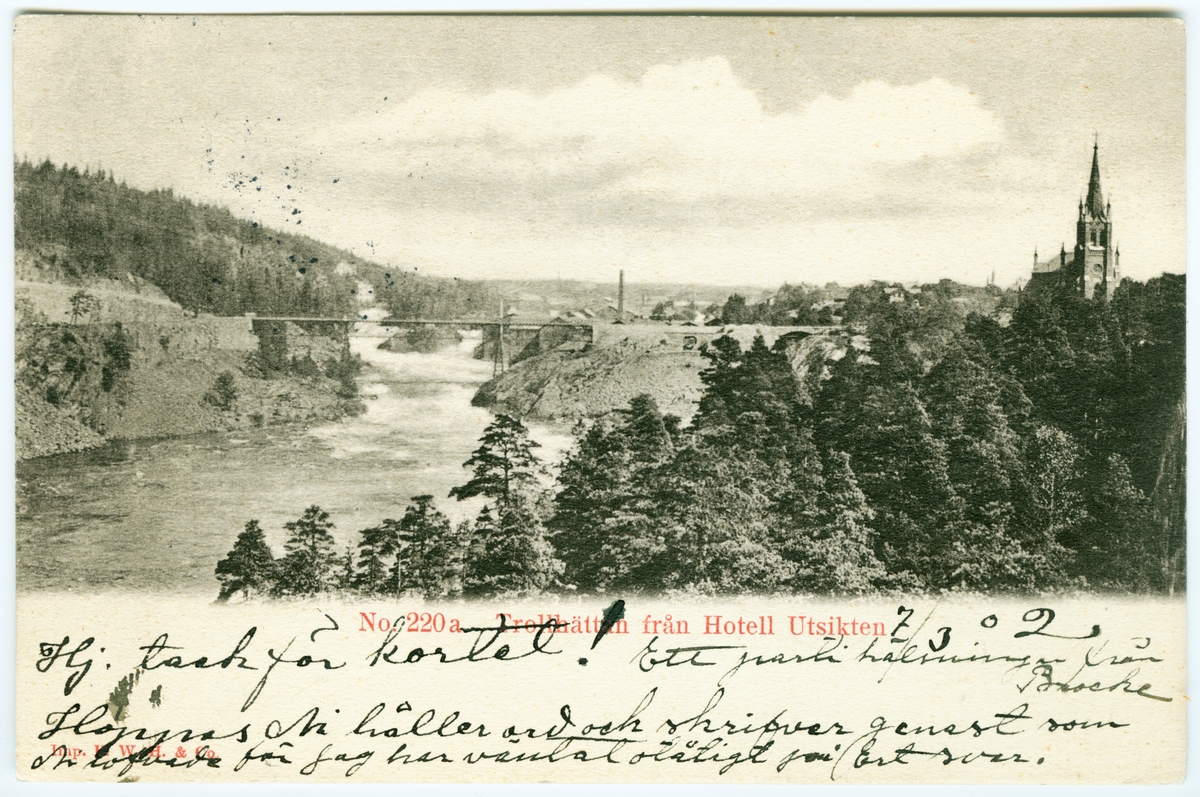 No. 220a Trollhättan från Hotell Utsikten
7/3 02
Hj. tack för kortet! Ett parti hälsningar från
Brocke
Hoppas Ni håller ord och skrifver genast som
Imp. W. H. & Co.
Ni lofvade för jag har väntat otåligt på Ert svar.